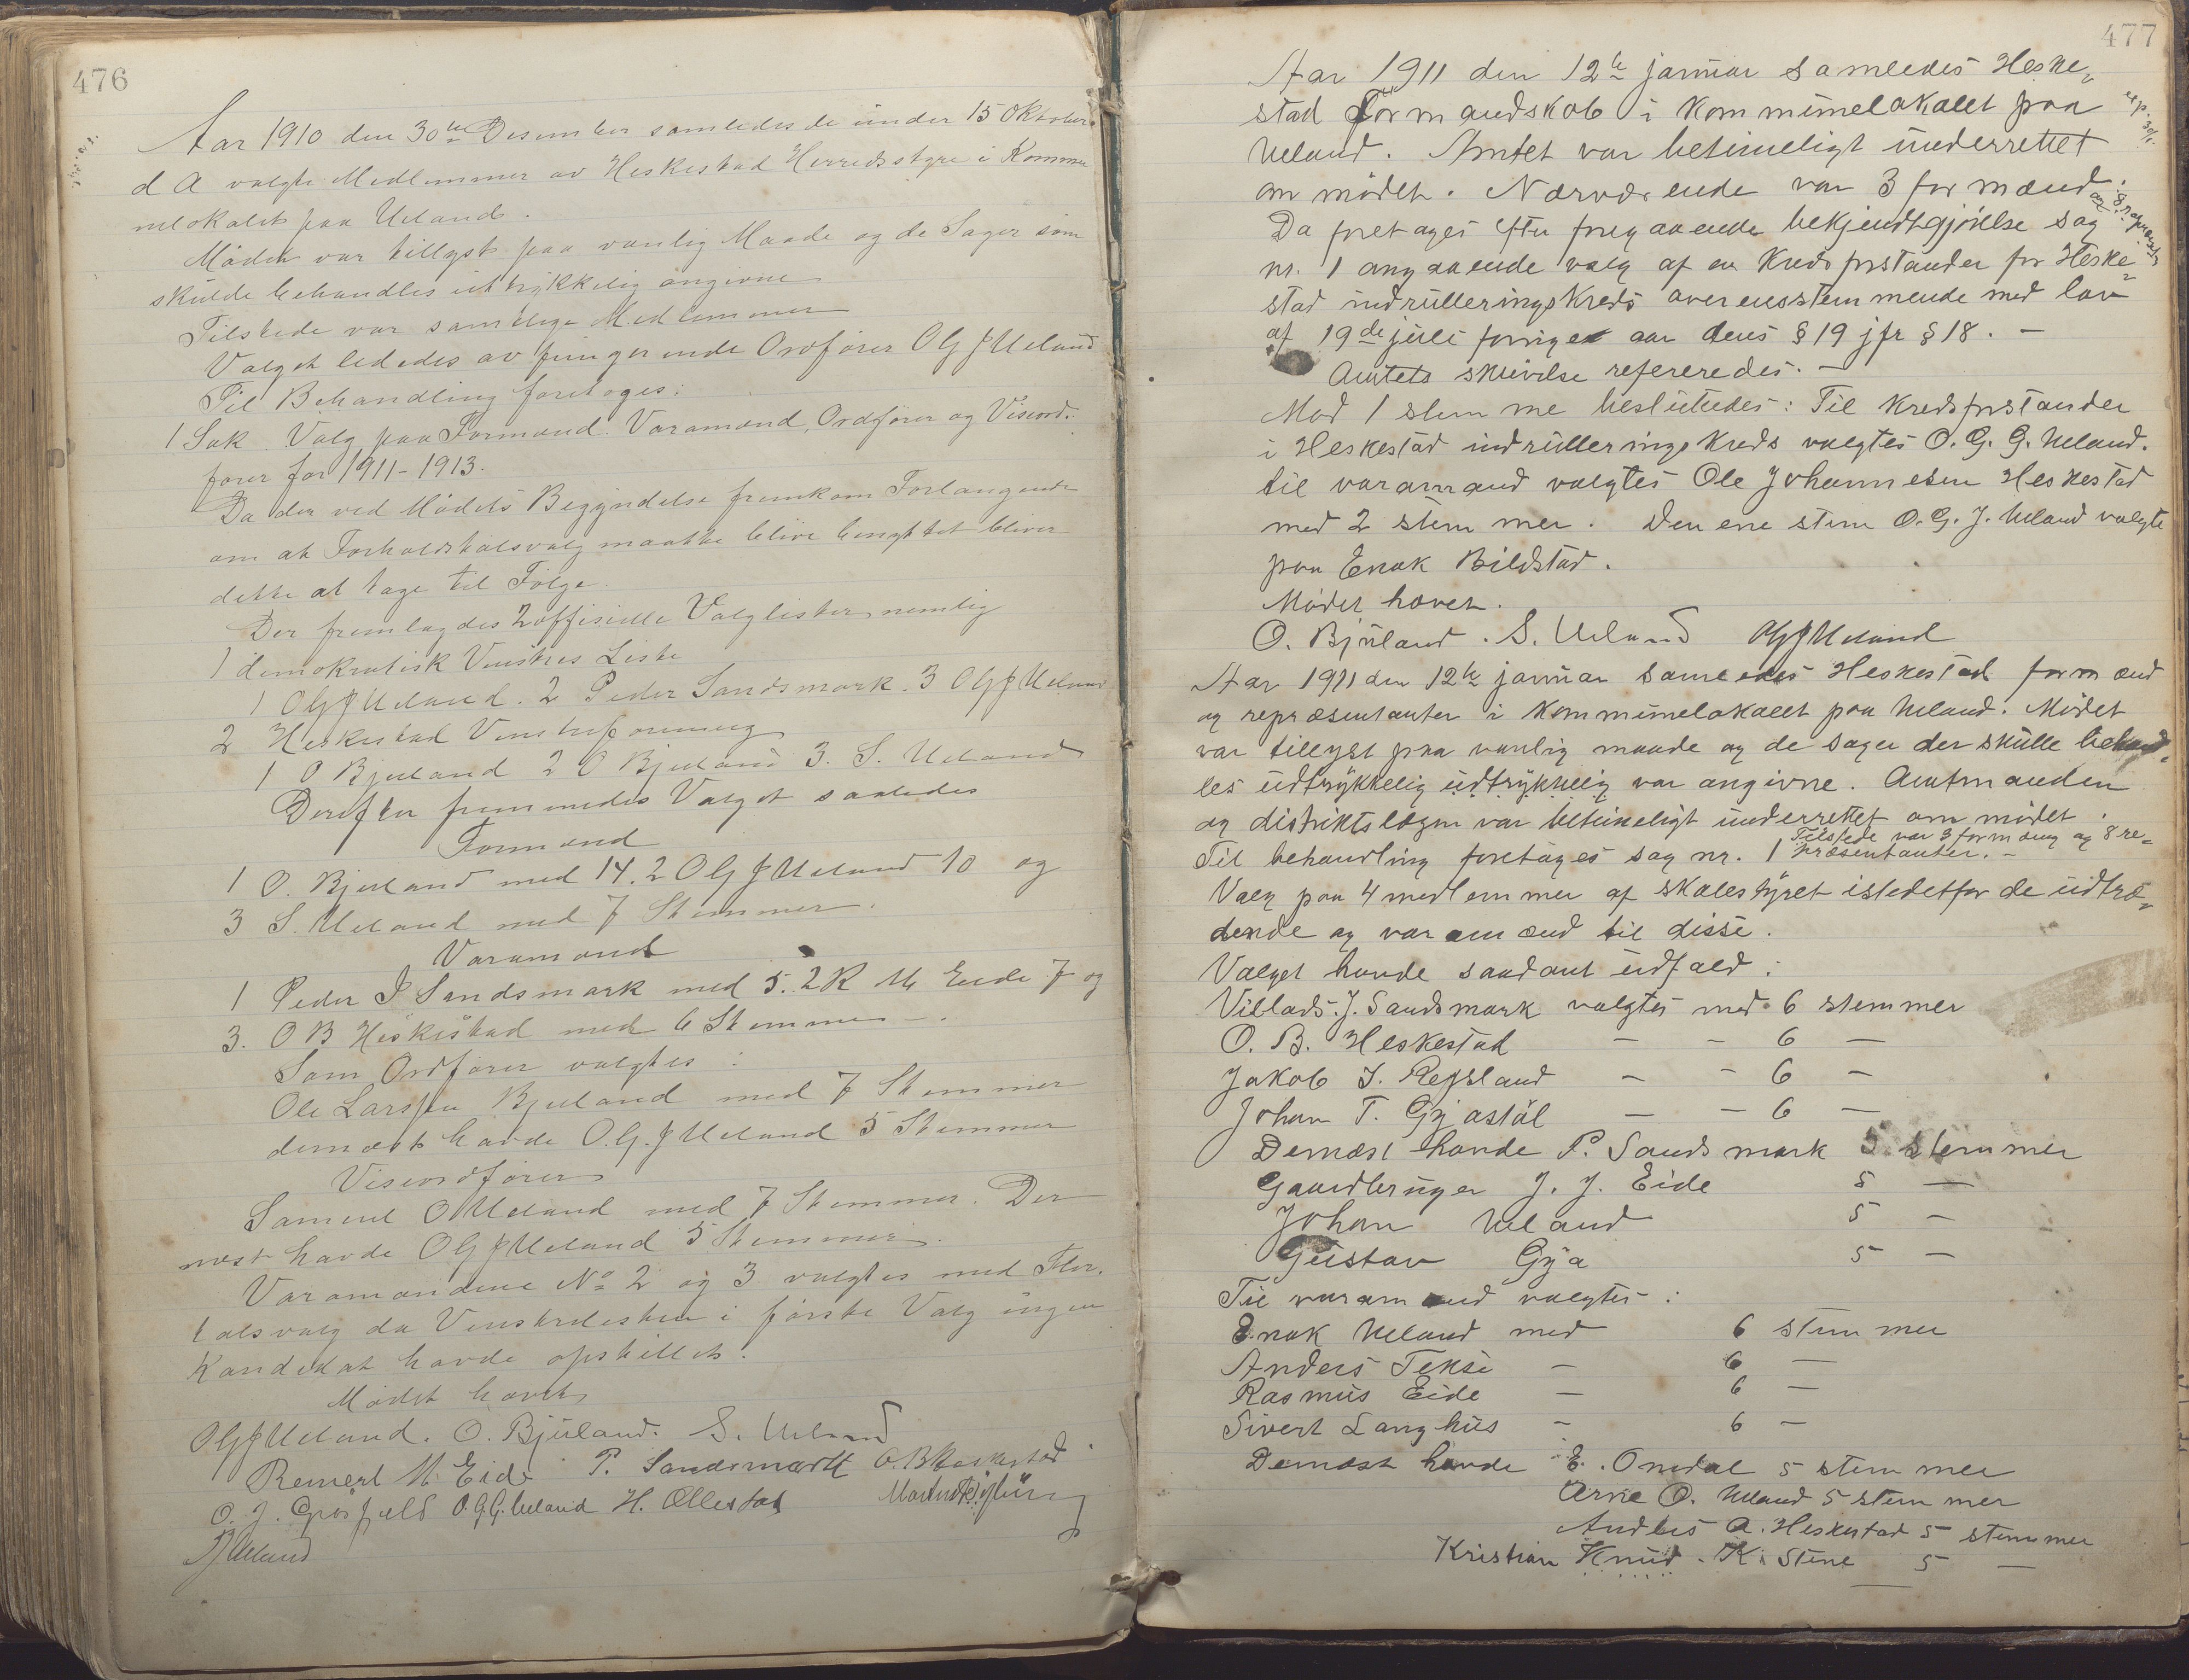 476
Aar 1910 den 30te Desember samledes de under 15 Oktober
d A valgte Medlemmer av Heskestad Herredsstyre i Kommu
nelokalet paa Ueland.
Mødet var tillyst paa vanlig Maade og de Sager som
skulde behandles uttrykkelig angivne
Tilstede var samtlige Medlemmer
Valget lededes av fungerende Ordfører OGJUeland
Til Behandling foretoges:
1 Sak. Valg paa Formænd. Varamænd, Ordfører og Viseord-
fører for 1911-1913.
Da der ved Mødets Begyndelse fremkom Forlangende
om at Forholdstalsvalg maatte blive benyttet bliver
dette at tage til Følge.
Der fremlagdes 2 offisielle Valglister nemlig
1 demokratisk Venstres Liste
1 OGJUeland. 2 Peder Sandsmark. 3 OGJUeland
2 Heskestad Venstreforening
1 O Bjuland 2 O Bjuland 3. S. Ueland
Derefter fremmedes Valget saaledes
Formænd
1 O. Bjuland med 14. 2 OGJUeland 10 og
3 S. Ueland med 7 Stemmer.
Varamænd
1 Peder I Sandsmark med 5. 2 R M Eide 7 og
3. O B Heskestad med 6 Stemmer.
Som Ordfører valgtes:
Ole Larssen Bjuland med 7 Stemmer
dernæst havde O.G.JUeland 5 Stemmer
Viseordfører
Samuel O Ueland med 7 Stemmer. Der
næst havde OGJUeland 5 Stemmer.
Varamændene No 2 og 3 valgtes med Fler-
talsvalg da Venstrelisten i første Valg ingen
Kandidat havde opstillet.
Mødet hævet
OGJUeland. O. Bjuland. S. Ueland
Reinert M. Eide P. Sandsmark O. B Heskestad
O. J. Grøsfjeld O.G.G.Ueland H. Ollestad
Ueland
477
Aar 1911 den 12te januar samledes Heske-
stad formandskab i kommunelokalet paa
Ueland. Amtet var betimeligt underrettet
om mødet. Nærværende var 3 formænd.
Da foretages efter foregaaende bekjendtgjørelse sag
nr. 1 angaaende valg af en kredsforstander for Heske-
stad indrulleringskreds overensstemmende med lov
af 19de juli forrige aar dens § 19 jfr § 18. —
Amtets skrivelse refereredes. —
Mod 1 stemme besluttedes: Til kredsforstander
i Heskestad indrulleringskreds valgtes O. G. G. Ueland.
til varamand valgtes Ole Johannesen Heskestad
med 2 stemmer. Den ene stem O. G. J. Ueland valgte
paa Enok Bilstad.
Mødet hævet.
O. Bjuland. S. Ueland OGJUeland
Aar 1911 den 12te januar samledes Heskestad formænd
og repræsentanter i kommunelokalet paa Ueland. Mødet
var tillyst paa vanlig maade og de sager der skulle behand-
les udtrykkelig udtrykkelig var angivne. Amtmanden
og distriktslægen var betimeligt underrettet om mødet.
Tilstede var 3 formænd og 8 re-
Til behandling foretages sag nr. 1 præsentanter. —
Valg paa 4 medlemmer af skolestyret istedetfor de udtræ-
dende og varamænd til disse.
Valget havde saadant udfald:
Villads. J. Sandsmark valgtes med 6 stemmer
O. B. Heskestad — — 6 —
Jakob I. Repsland — — 6 —
Johan T. Gyastøl — — 6 —
Dernæst havde P. Sandsmark 5 stemmer
Gaardbruger J. J. Eide 5 —
Johan Ueland 5 —
Gustav Gya 5 —
Til varamænd valgtes:
Enok Ueland med 6 stemmer
Anders Tekse — 6 —
Rasmus Eide — 6 —
Sivert Langhus — 6 —
Dernæst havde E. Omdal 5 stemmer
Arne O. Ueland 5 stemmer
Andreas A. Heskestad 5 stemmer
Kristian Knud. K. Stene 5 —